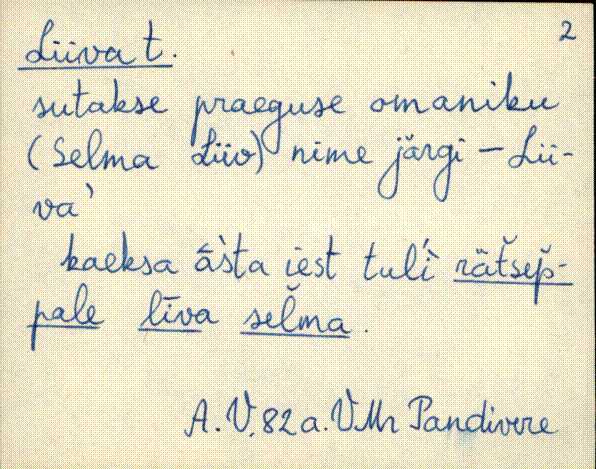 2
Liiva t.
sutakse praeguse omaniku
(Selma Liiv) nime järgi – Lii-
va`
kaeksa āsta iest tuĺì rätšep̆-
pale līva sel̆ma.
A.V. 82 a. VMr Pandivere